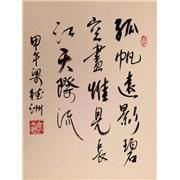 孤帆遠影碧
空盡惟見長
江天際流
甲午梁稚洲